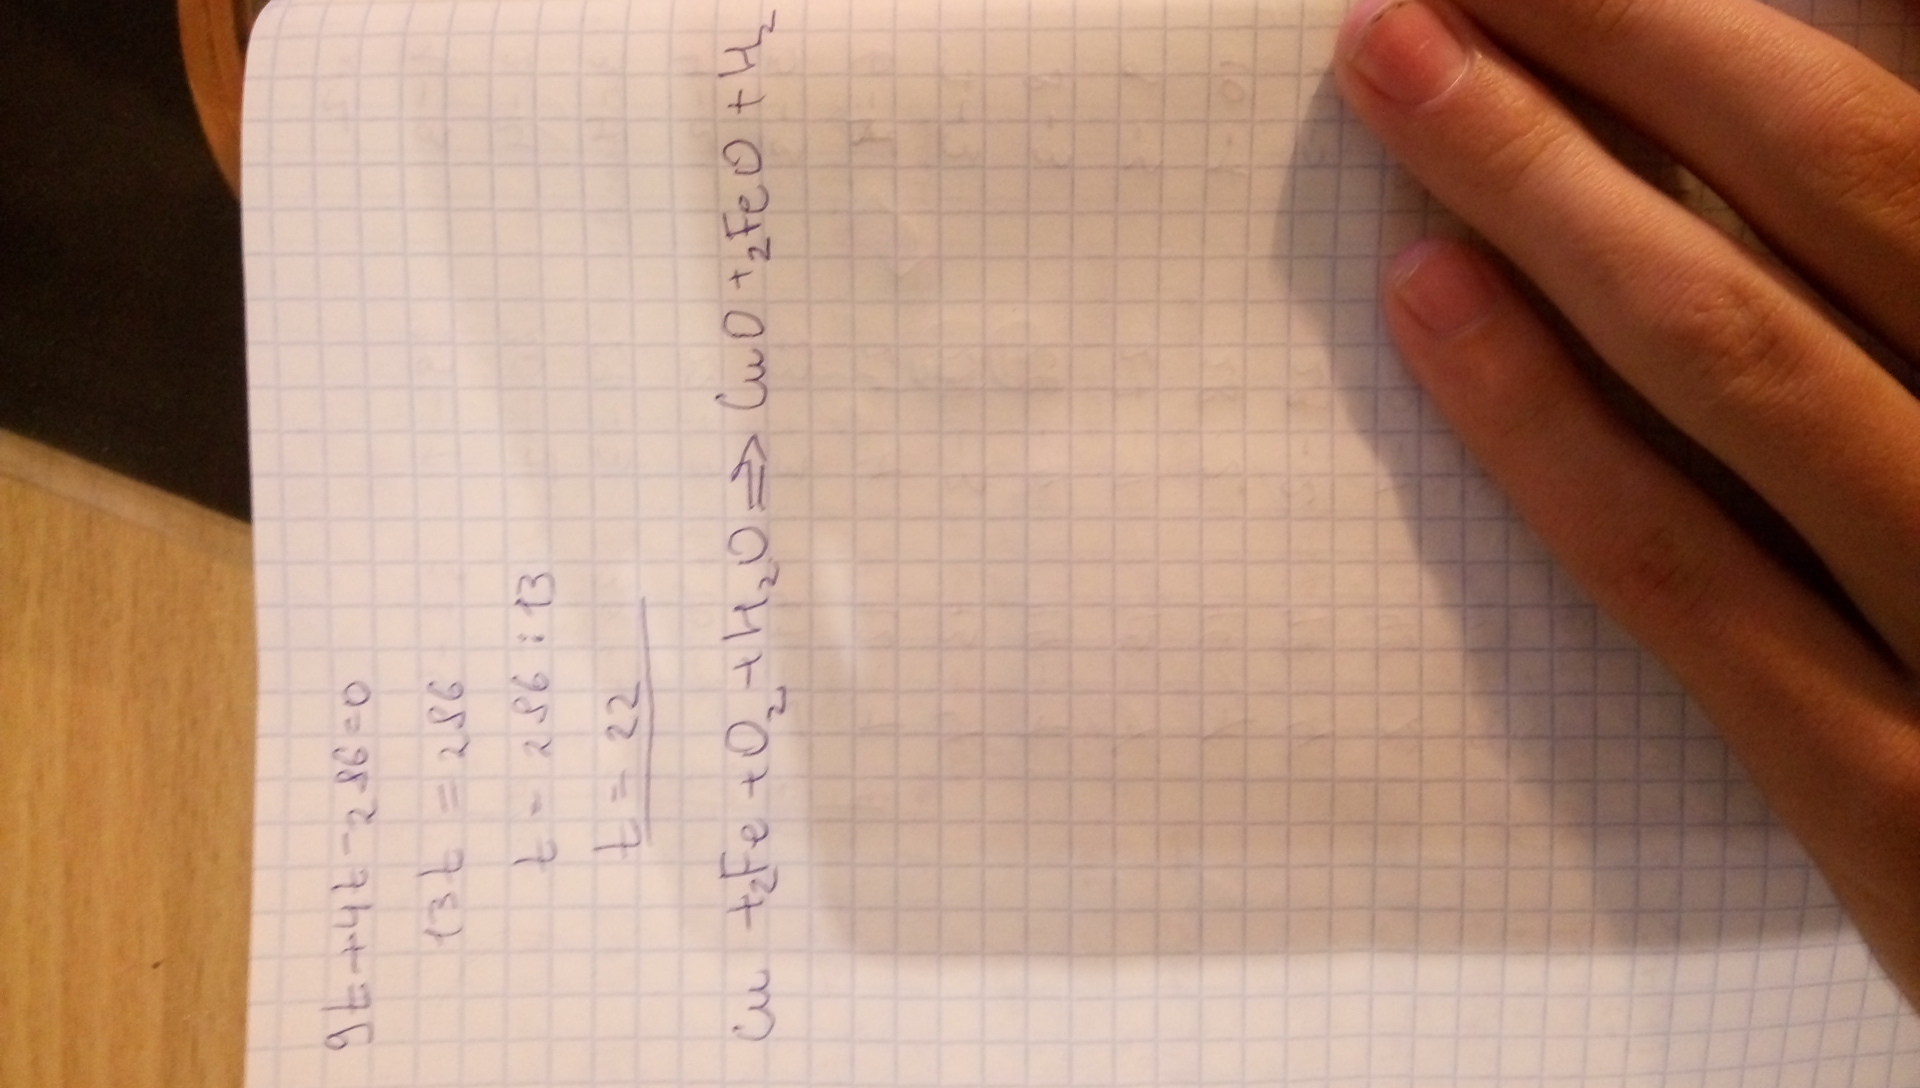 9t+4t-286=0
13t=286
t=286:13
t=22
Cu+2Fe+O₂+H₂O⇒CuO+2FeO+H₂